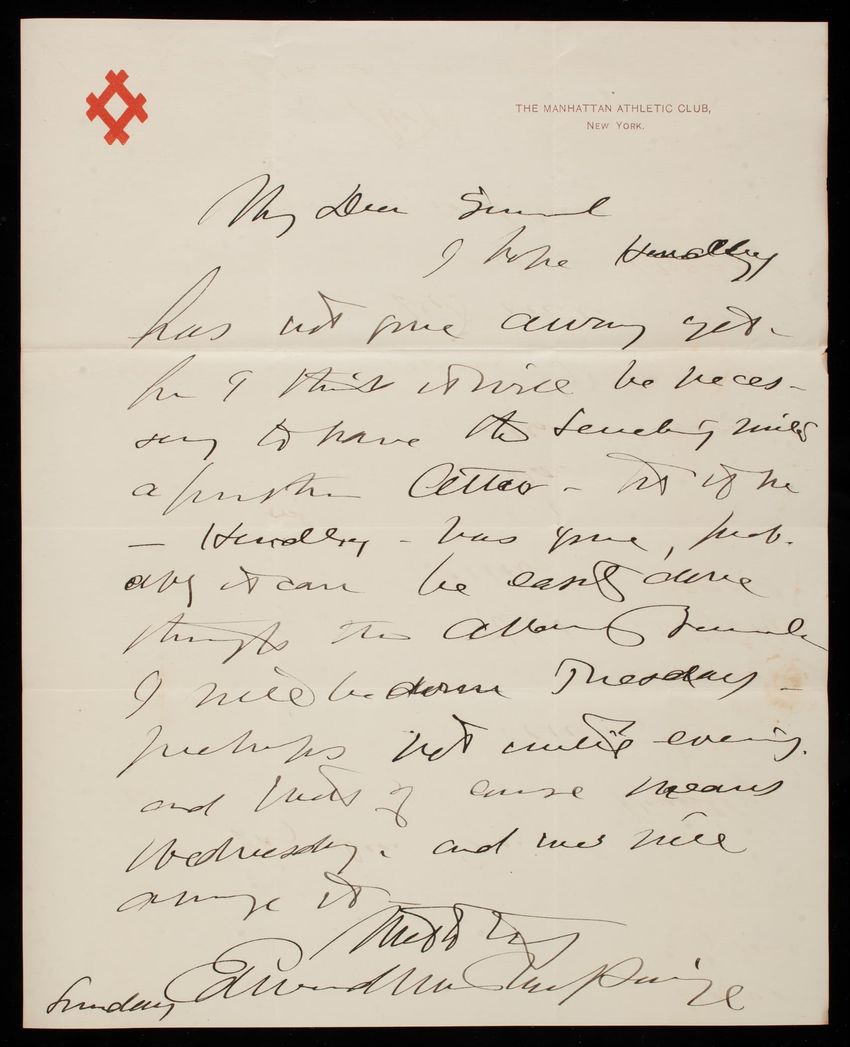 THE MANHATTAN ATHLETIC CLUB,
NEW YORK.
My Dear
I hope Hendley
has not gone away yet -
for I think it will be neces-
sary to have the
a further letter - but if he
- Hendley - has gone, prob-
ably it can be easily done
through the
I will be down Tuesday -
perhaps not until evening.
and that of course means
Wednesday. and we will
arrange it -
Edward
Sunday